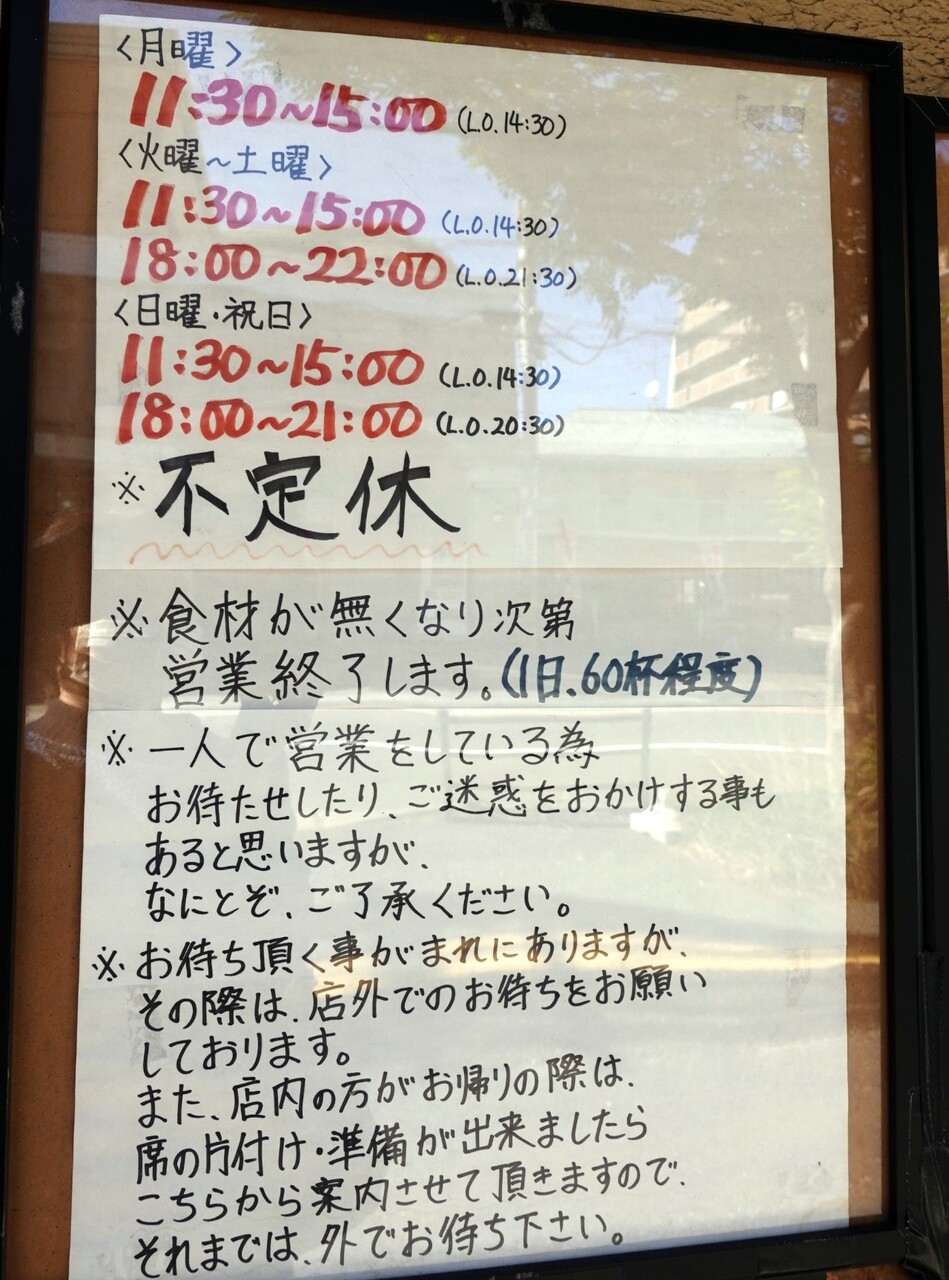 〈月曜〉
11:30~15:00 (L.O.14:30)
〈火曜~土曜〉
11:30~15:00 (L.O.14:30)
18:00~22:00 (L.O.21:30)
〈日曜・祝日〉
11:30~15:00 (L.O.14:30)
18:00~21:00 (L.O.20:30)
※不定休
※食材が無くなり次第
営業終了します。(1日.60杯程度)
※一人で営業をしている為
お待たせしたり、ご迷惑をおかけする事も
あると思いますが、
なにとぞ、ご了承ください。
※お待ち頂く事がまれにありますが、
その際は、店外でのお待ちをお願い
しております。
また、店内の方がお帰りの際は、
席の片付け・準備が出来ましたら
こちらから案内させて頂きますので、
それまでは、外でお待ち下さい。